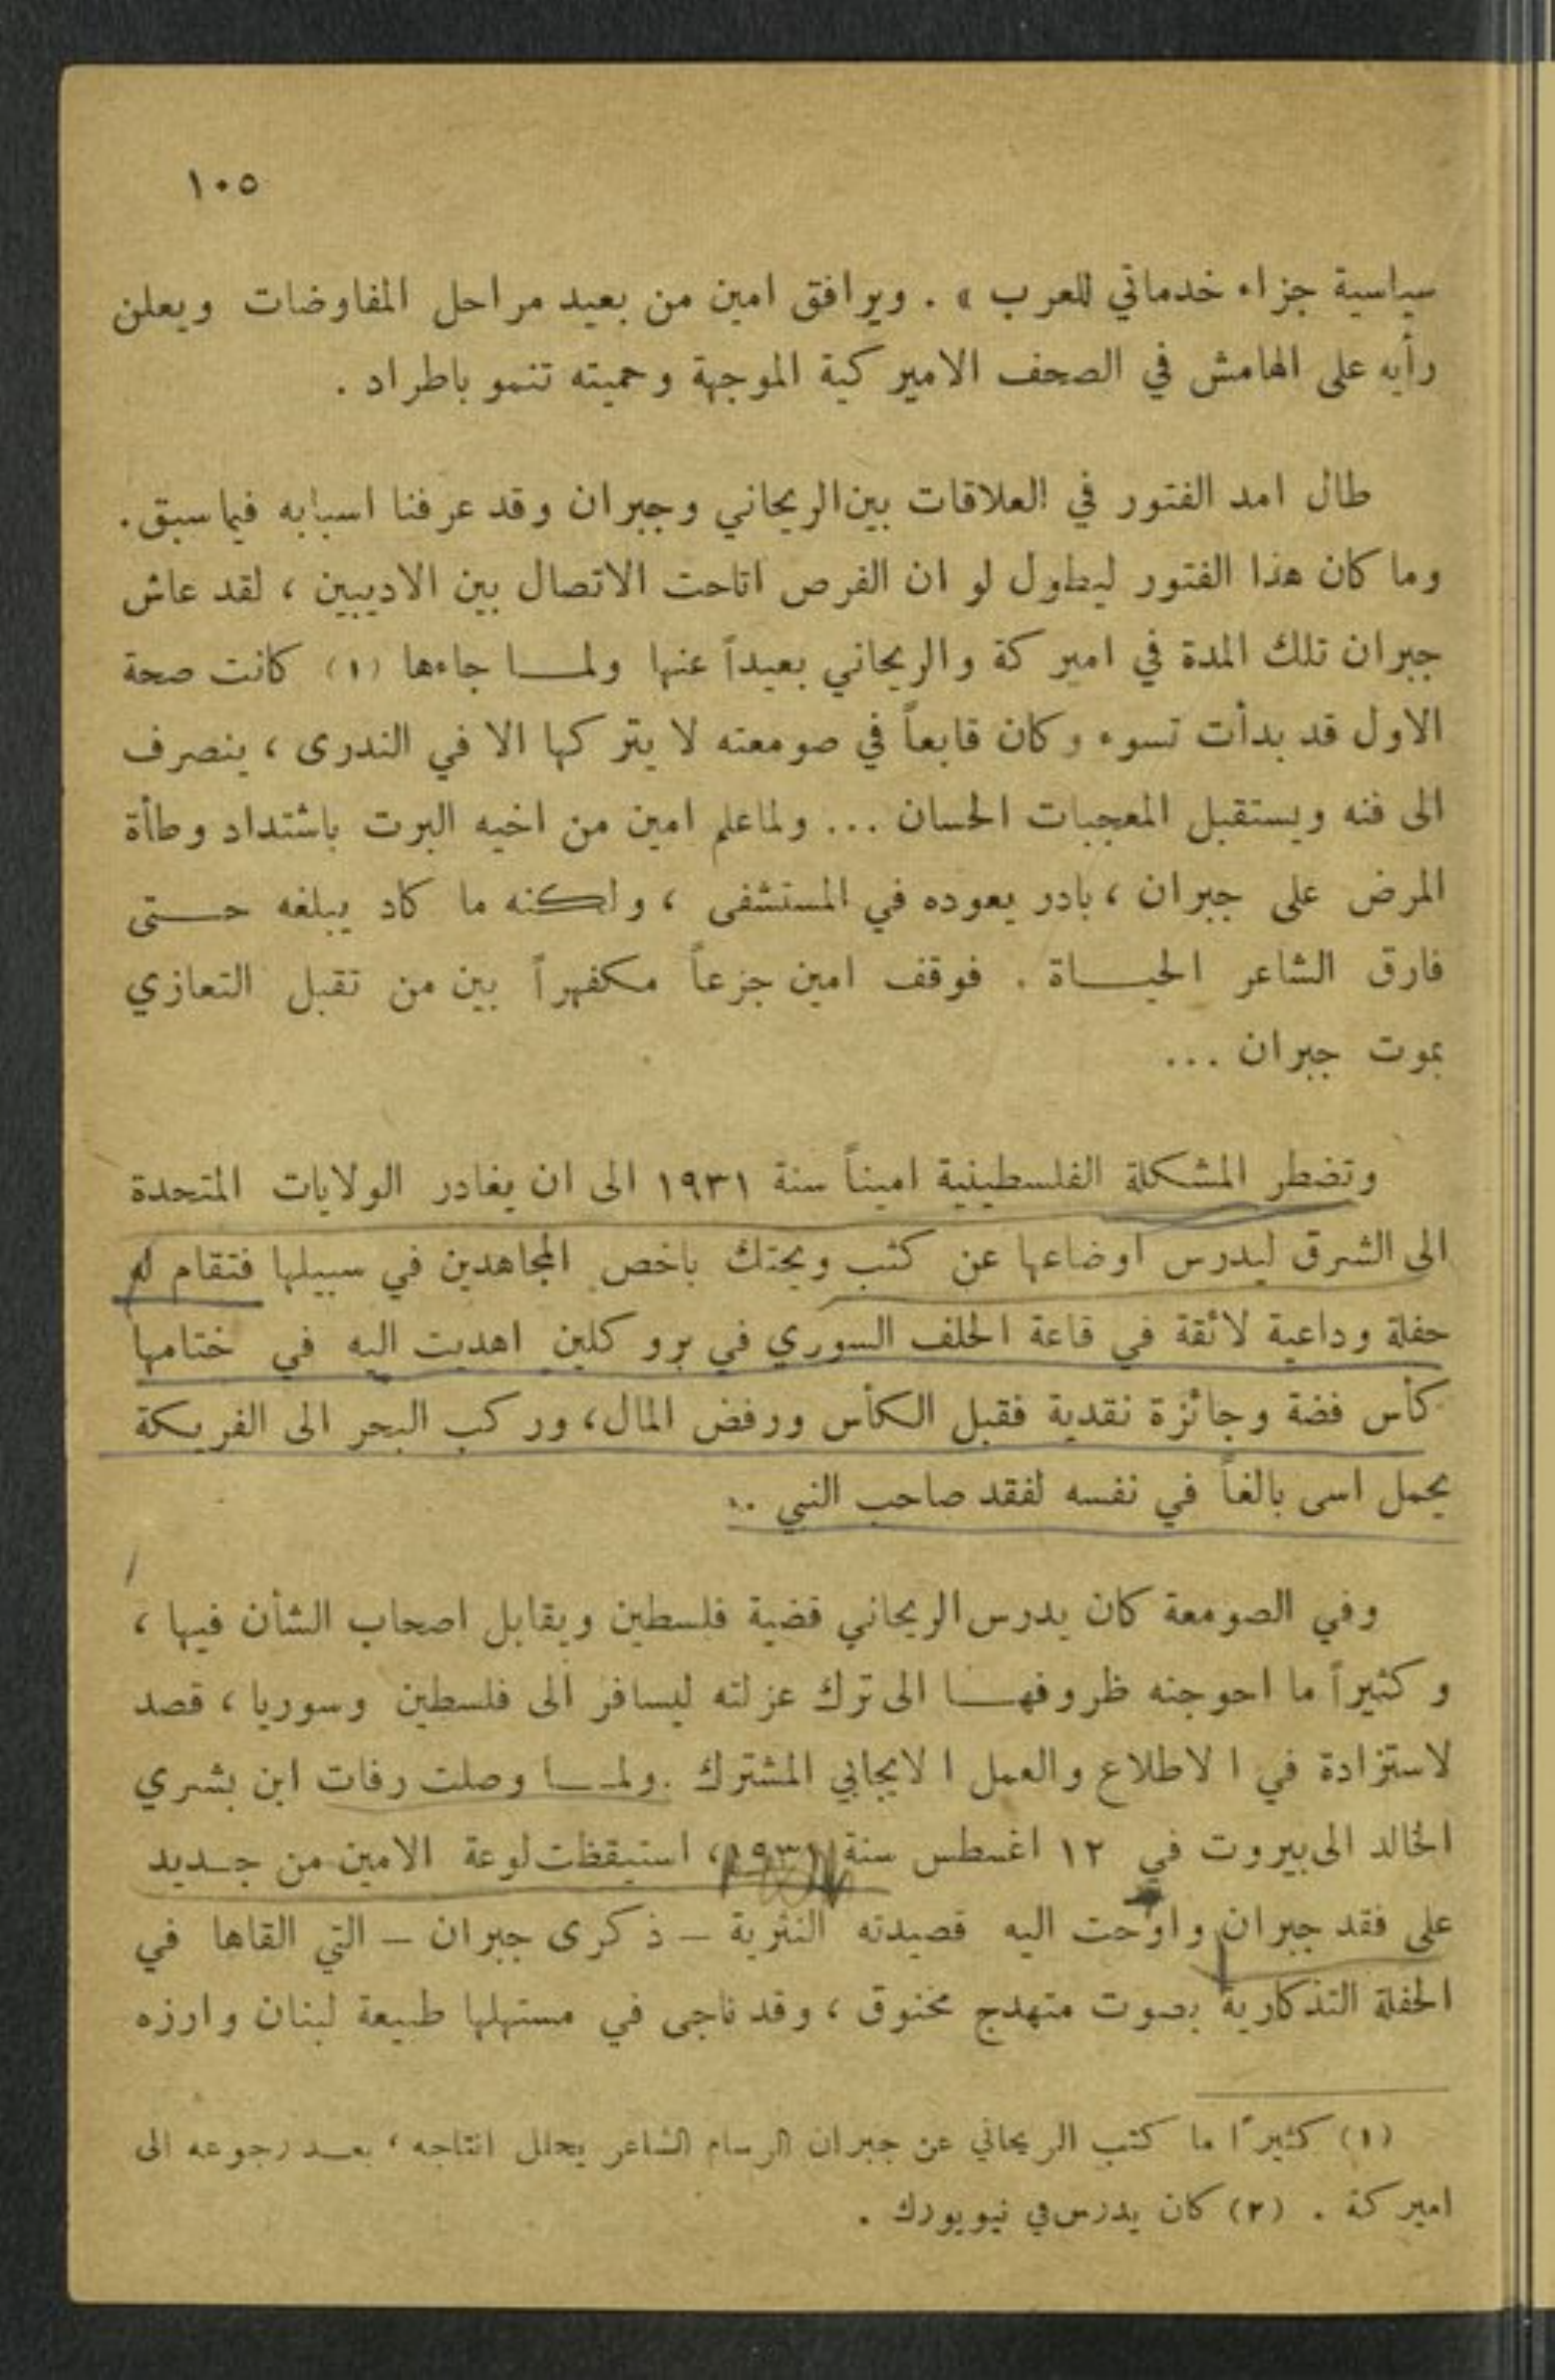 ١٠٥
سياسية جزاء خدماتي للعرب » . ويرافق امين من بعيد مراحل المفاوضات ويعلن
رأيه على الهامش في الصحف الاميركية الموجهة وحميته تنمو باطراد .
طال امد الفتور في العلاقات بين الريحاني وجبران وقد عرفنا اسبابه فيما سبق .
وما كان هذا الفتور ليطول لو ان الفرص اتاحت الاتصال بين الاديبين ، لقد عاش
جبران تلك المدة في اميركة والريحاني بعيداً عنها ولمـــا جاءها (١) كانت صحة
الاول قد بدأت تسوء وكان قابعاً في صومعته لا يتركها الا في الندرى ، ينصرف
الى فنه ويستقبل المعجبات الحسان ... ولما علم امين من اخيه البرت باشتداد وطأة
المرض على جبران ، بادر يعوده في المستشفى ، ولكنه ما كاد يبلغه حـــتى
فارق الشاعر الحيـــاة . فوقف امين جزعاً مكفهراً بين من تقبل التعازي
بموت جبران ...
وتضطر المشكلة الفلسطينية اميناً سنة ١٩٣١ الى ان يغادر الولايات المتحدة
الى الشرق ليدرس اوضاعها عن كثب ويحتك باخص المجاهدين في سبيلها فتقام له
حفلة وداعية لائقة في قاعة الحلف السوري في بروكلين اهديت اليه في ختامها
كأس فضة وجائزة نقدية فقبل الكأس ورفض المال ، وركب البحر الى الفريكة
يحمل اسى بالغاً في نفسه لفقد صاحب النبي ..
وفي الصومعة كان يدرس الريحاني قضية فلسطين ويقابل اصحاب الشأن فيها ،
وكثيراً ما احوجته ظروفهـــا الى ترك عزلته ليسافر الى فلسطين وسوريا ، قصد
لاستزادة في الاطلاع والعمل الايجابي المشترك . ولمـــا وصلت رفات ابن بشري
الخالد الى بيروت في ١٢ اغسطس سنة ١٩٣١ ، استيقظت لوعة الامين من جـديد
على فقد جبران واوحت اليه قصيدته النثرية – ذكرى جبران – التي القاها في
الحفلة التذكارية بصوت متهدج مخنوق ، وقد ناجى في مستهلها طبيعة لبنان وارزه
(١) كثيراً ما كتب الريحاني عن جبران الرسام الشاعر يحلل انتاجه ، بعـد رجوعه الى
اميركة . (٢) كان يدرس في نيويورك .